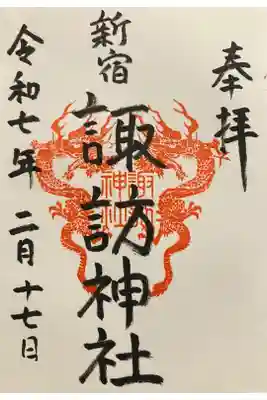 奉拝
新宿
諏訪神社
令和七年 二月十七日
諏訪神社